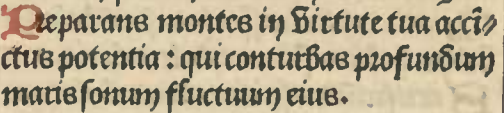 Preparans montes in virtute tua acci̅/
ctus potentia : qui conturbas profundum
maris sonum fluctuum eius.